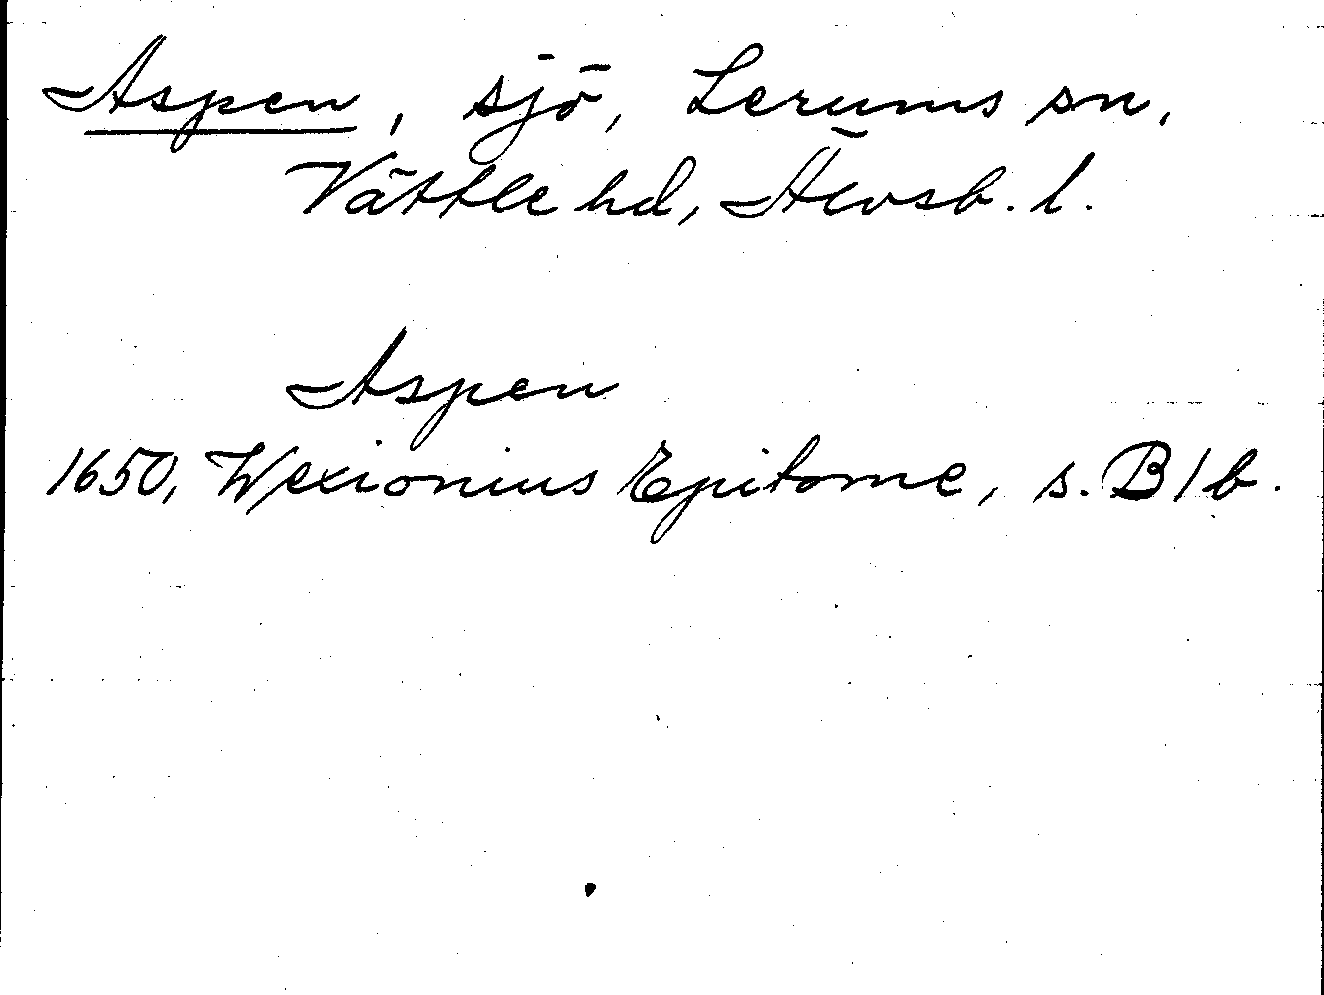 Aspen, sjö, Lerums sn,
Vättle hd, Älvsb. l.
Aspen
1650, Wexionius Epitome, s. B1b.